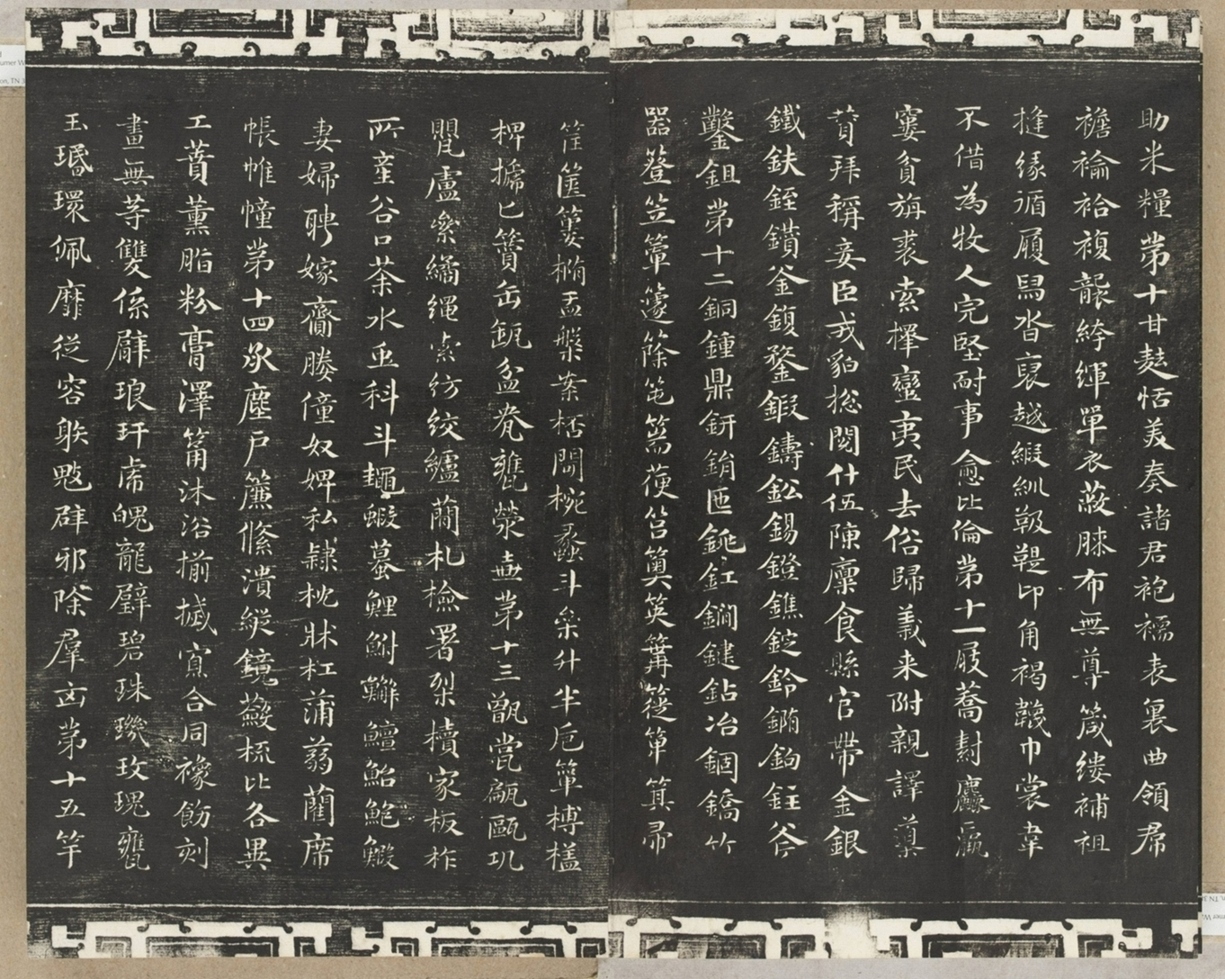 助米糧第十甘麮恬美奏諸君袍襦表裏曲領帬
襜褕袷複襲絝緷單衣蔽膝布無尊箴縷補袒
摓緣循履舄沓裒越緞紃靸鞮卬角褐韤巾裳韋
不借為牧人完堅耐事愈比倫第十一屐蕎
窶貧旃裘索擇蠻夷民去俗歸義来附親譯導
贊拜稱妾臣戎貊総閱什伍陳廩食縣官帶金銀
鐵鈇銍鑽釜鍑鍪鍜鑄鈆錫鐙鐎錠鈴鐈鉤銍斧
鑿鉏第十二銅鍾鼎鈃銷匜銚釭鐧鍵鉆冶錮鐈竹
器簦笠簟籧篨笔篅䈏筥箕篝簁箄箕帚
筐篋簍椭盂槃案桮閜椀蠡斗枀升半巵簞榑榼
椑㯫匕籫缶缻盆瓮甕罃壺第十三甑甞甂甌瓨
罌盧枲繘繩索紡絞纑蘭札檢署椠櫝家板柞
所産谷口荼水虫科斗蠅蝦蟇鯉鮒鱣鮐鮑鰕
妻婦聘嫁齎媵僮奴婢私隸枕牀杠蒲蒻藺席
帳帷幢第十四承塵戶簾絛潰縱鏡蘞梳比各異
工蕡薰脂粉膏澤筩沐浴揃搣寡合同襐飭刻
畫無等雙係臂琅玕虎魄龍璧碧珠璣玫瑰甕
玉瑉環佩靡從容躲䰡辟邪除羣凶第十五竽